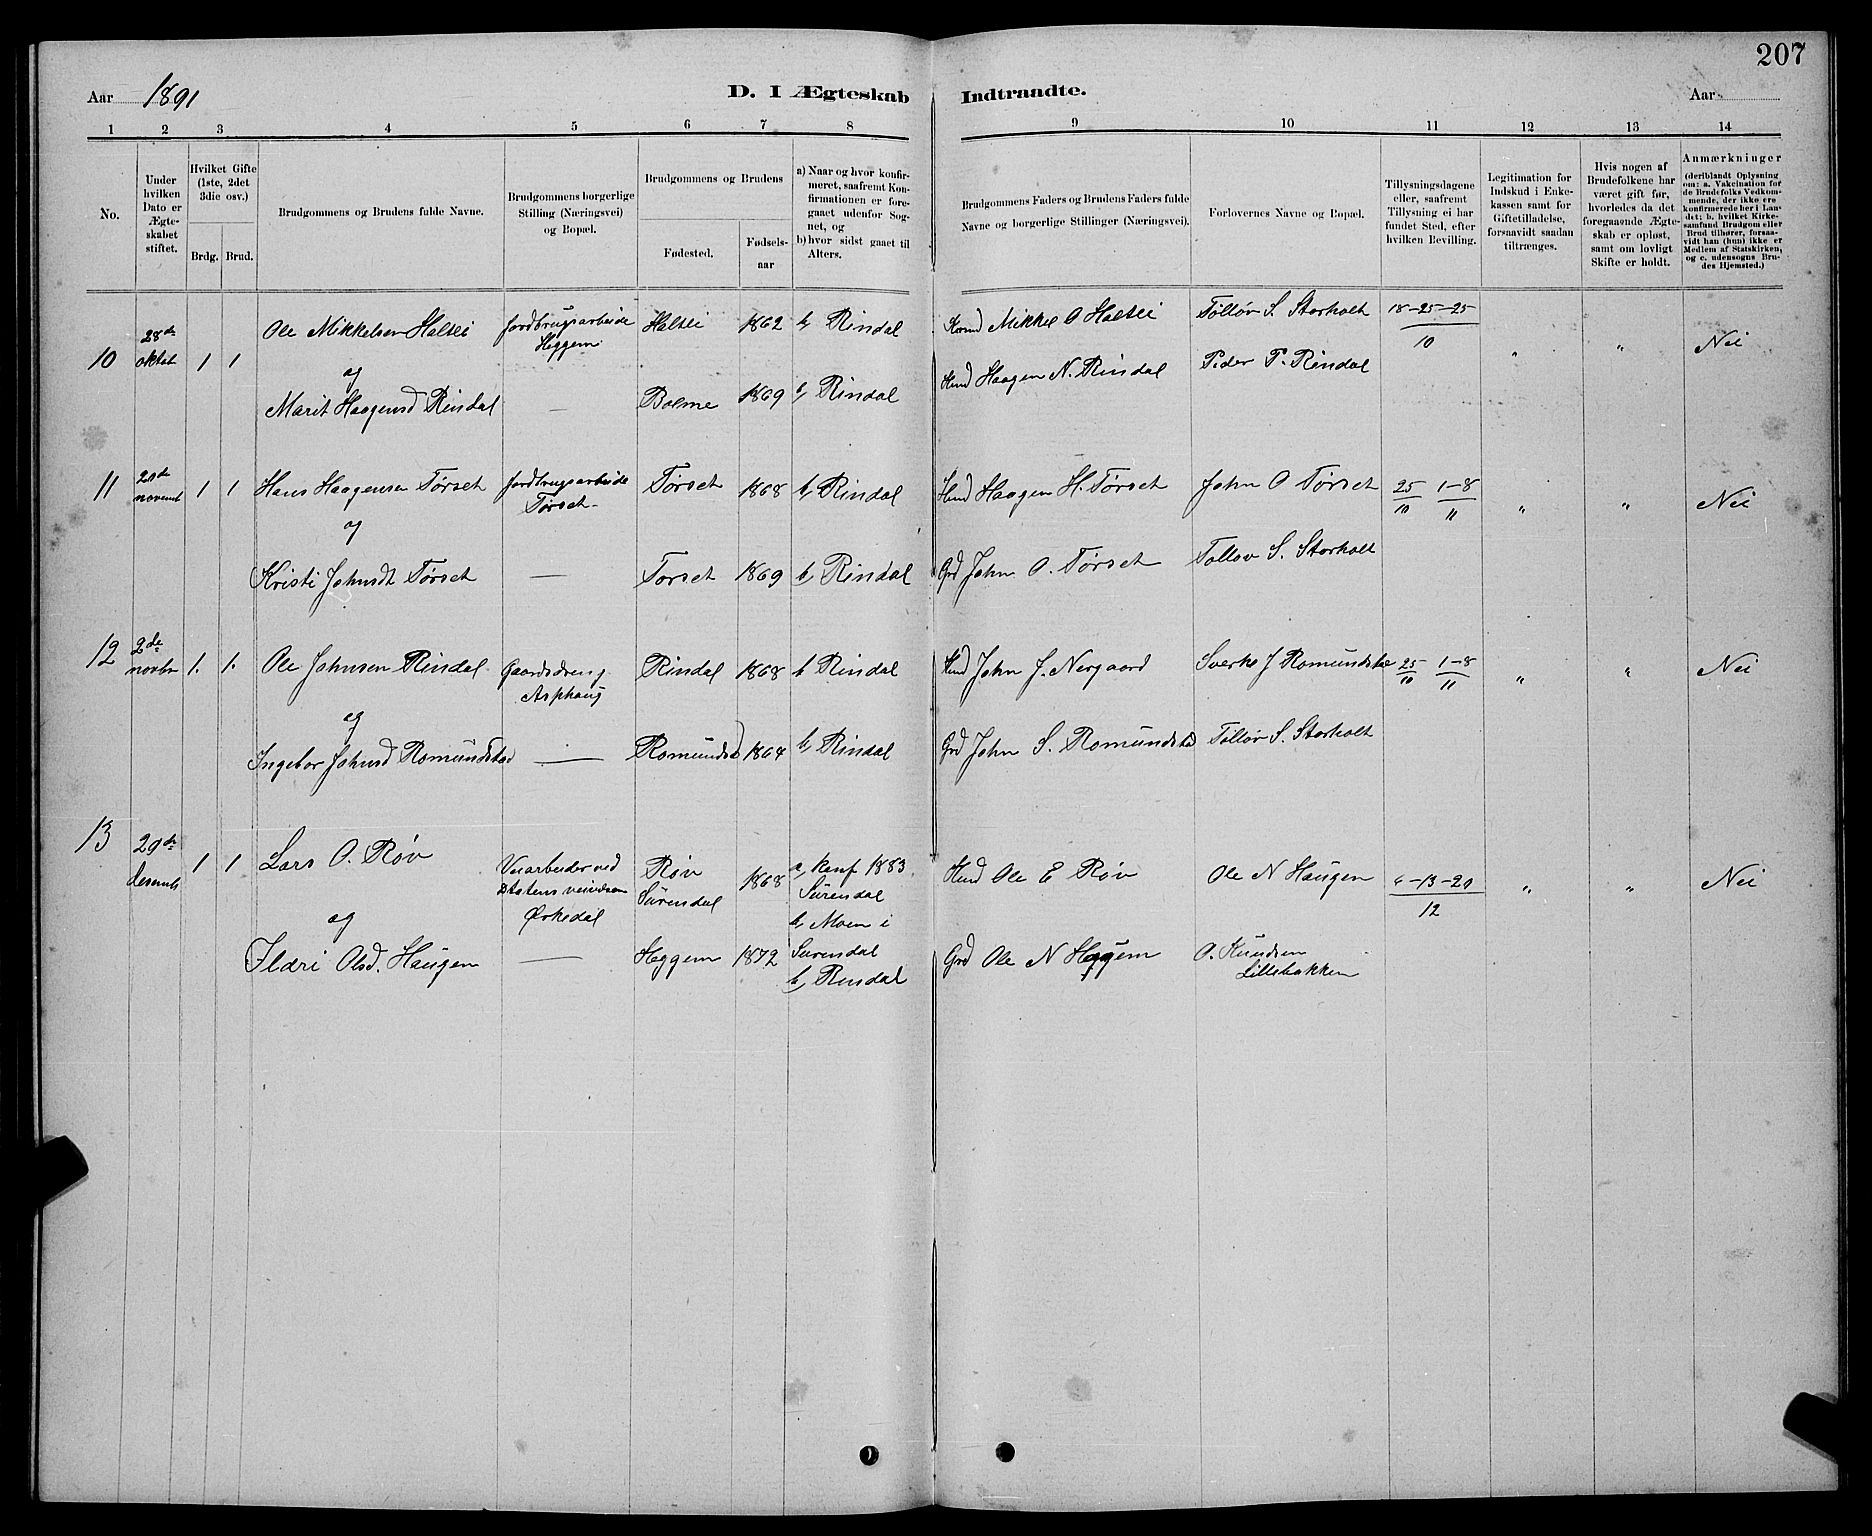 207
Aar 1891
D. I Ægteskab Indtraadte.
Aar
1 2 3 4 5 6 7 8 9 10 11 12 13 14
No.
Under
hvilken
Dato er
Ægte-
skabet
stiftet.
Hvilket Gifte
(1ste, 2det
3die osv.)
Brdg. Brud.
Brudgommens og Brudens fulde Navne.
Brudgommens borgerlige
Stilling (Næringsvei)
og Bopæl.
Brudgommens og Brudens
Fødested.
Fødsels-
aar
a) Naar og hvor konfir-
meret, saafremt Kon-
firmationen er fore-
gaaet udenfor Sog-
net, og
b) hvor sidst gaaet til
Alters.
Brudgommens Faders og Brudens Faders fulde
Navne og borgerlige Stillinger (Næringsvei).
Forlovernes Navne og Bopæl.
Tillysningsdagene
eller, saafremt
Tillysning ei har
fundet Sted, efter
hvilken Bevilling.
Legitimation for
Indskud i Enke-
kassen samt for
Giftetilladelse,
forsaavidt saadan
tiltrænges.
Hvis nogen af
Brudefolkene har
været gift før,
hvorledes da det
foregaaende Ægte-
skab er opløst,
samt om lovligt
Skifte er holdt.
Anmærkninger
(deriblandt Oplysning
om: a. Vakcination for
de Brudefolks Vedkom-
mende, der ikke ere
konfirmerede her i Lan-
det; b. hvilket Kirke-
samfund Brudgom eller
Brud tilhører, forsaa-
vidt han (hun) ikke er
Medlem af Statskirken,
og c. udensogns Bru-
des Hjemsted.)
10 28de oktob 1 1 Ole Mikkelsen Halsei jordbrugsarbeide Heggem Halsei 1862 b, Rindal Mikkel O Halsei Tølløv S. Storholt 18-25-25/10 " " Nei
og
Marit Haagensd Rindal — Bolme 1869 b, Rindal Hmd Haagen N. Rindal Peder P. Rindal
11 novemb 1 1 Hans Haagensen Tørset jordbrugsarbeide Tørset Tørset 1868 b, Rindal Hmd Haagen H. Tørset John O Tørset 25/10 1-8/11 " " Nei
og
Kristi Johnsdt Tørset — Tørset 1869 b, Rindal Grd John O. Tørset Tølløv S. Storholt
12 2de novbr 1. 1. Ole Johnsen Rindal Gaardsdreng Asphaug Rindal 1868 b Rindal Hmd John J. Nergaard Sverke J Romundsta 25/10 1-8/11 " " Nei
og
Ingebor Johnsd Romundstad — Romundsd 1864 b, Rindal Grd John S. Romundsta Tølløv S. Storholt
13 29de desemb 1 1 Lars O. Røv Veiarbeider ved Statens veivæsen Ørkedal Røv Surendal 1868 a, konf 1883. Surendal b, Moen i Surendal Hmd Ole E Røv Ole N Haugen 6-13-20/12 " " Nei
og
Ildri Olsd. Haugen — Heggem 1872 b, Rindal Grd Ole N Heggem O. Knudsen Lillebakken